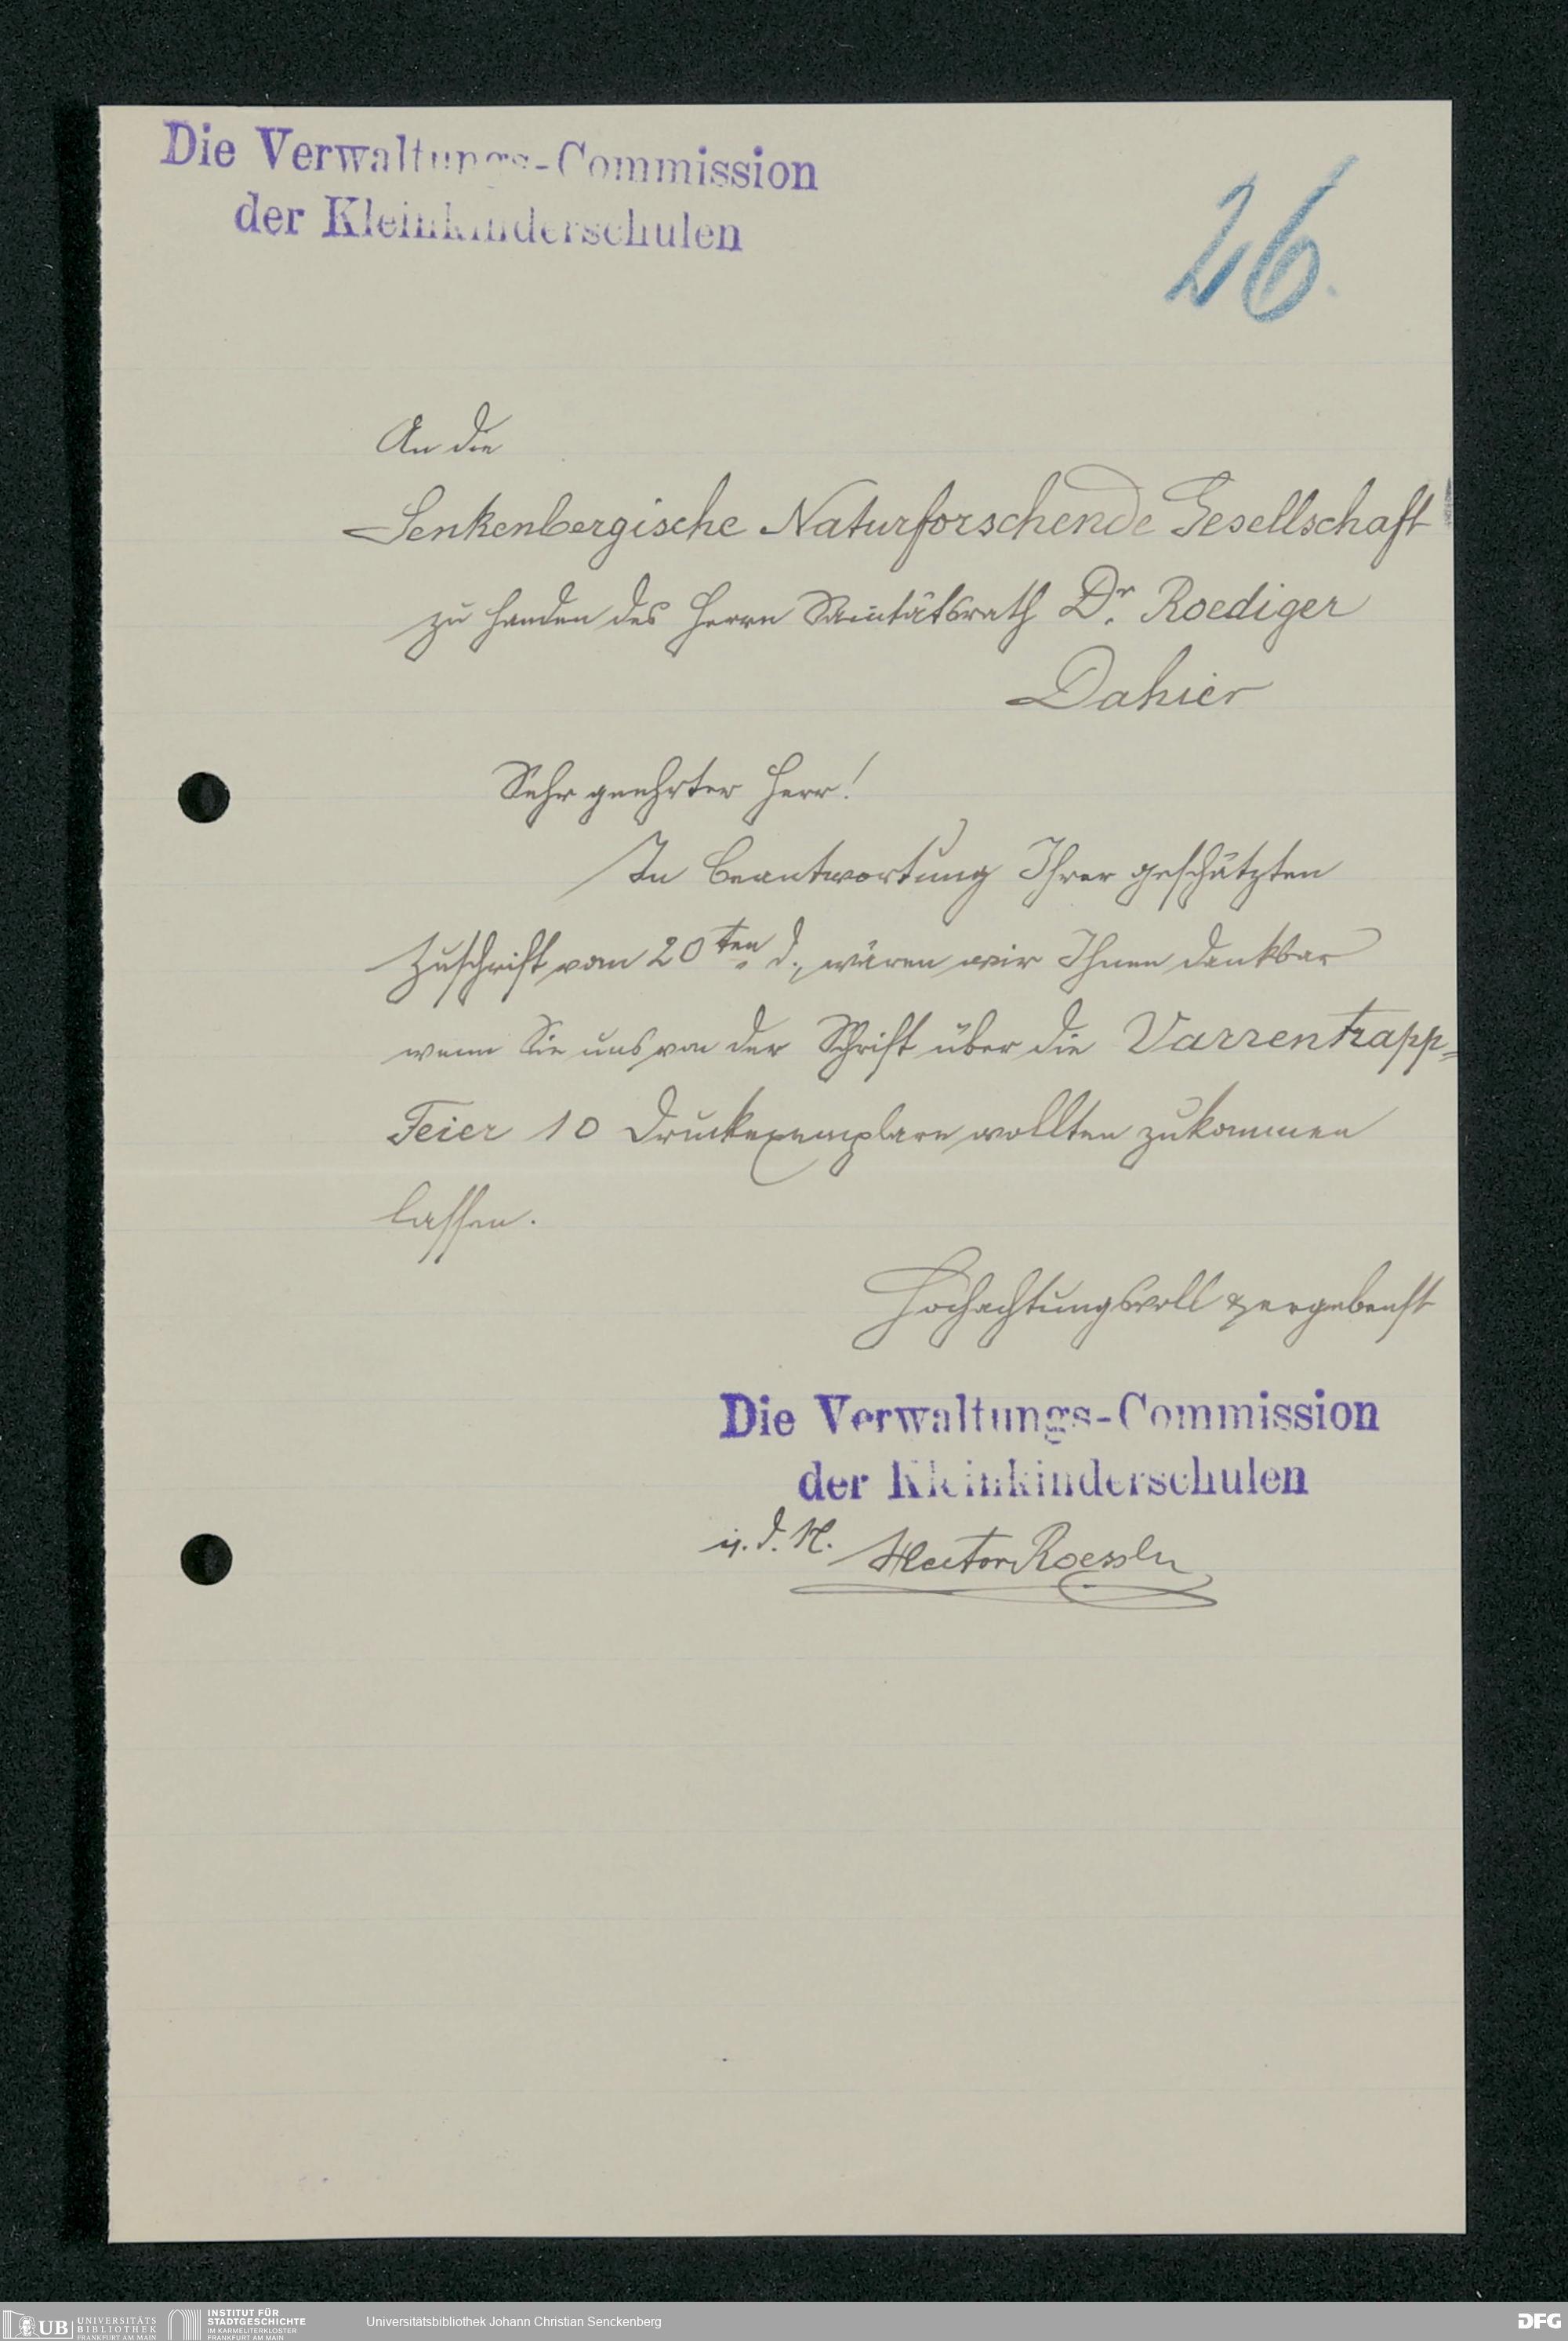 Die Verwaltungs-Commission
der Kleinkinderschulen
26.
An die
Senkenbergische Naturforschende Gesellschaft
zu Handen des Herrn Sanitätsrath Dr. Roediger
Dahier
Sehr geehrter Herr!
In Beantwortung Ihrer geschätzten
Zuschrift vom 20ten d., wären wir Ihnen dankbar
wenn Sie uns von der Schrift über die Varrentrapp-
Feier 10 Druckexemplare wollten zukommen
lassen.
Hochachtungsvoll & ergebenst
Die Verwaltungs-Commission
der Kleinkinderschulen
i. d. N. Hector Roessler
UB UNIVERSITÄTS BIBLIOTHEK FRANKFURT AM MAIN
INSTITUT FÜR STADTGESCHICHTE IM KARMELITERKLOSTER FRANKFURT AM MAIN
Universitätsbibliothek Johann Christian Senckenberg
DFG